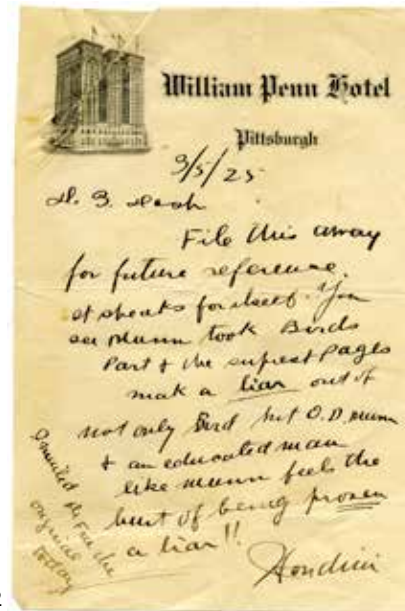 William Penn Hotel
Pittsburgh
3/5/25
File this away
for future reference.
It speaks for itself. You
see Munn took Birds
Part & the Pages
make a liar out of
not only Bird but O.D. Munn
& an educated man
like Munn feels the
hurt of being proven
a liar!!
Houdini
I mailed the
original
today